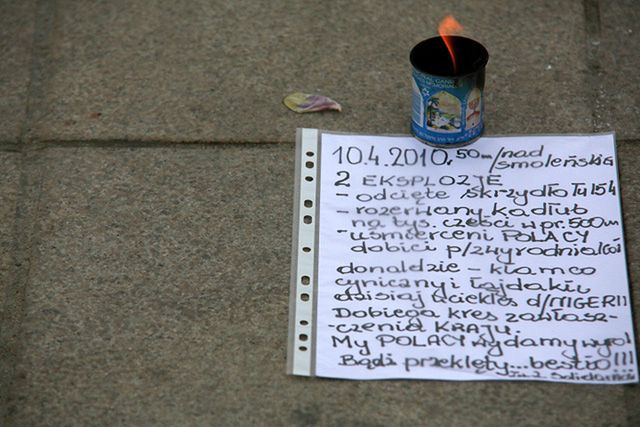 MEMORIAL
10.4.2010, 50m/nad
smoleńskią
2 EKSPLOZJE
- odcięte skrzydło tu154
- rozerwany kadłub
na tys. części w pr. 500m
- uśmierceni POLACY
dobici p/zwyrodnialców
donaldzie - kłamco
cyniczny i łajdaku
dzisiaj uciekłeś d/NIGERII
Dobiega kres zawłasz-
-czenia KRAJU.
My POLACY wydamy wyrok!
Bądź przeklęty...bestio!!!
Solidarność